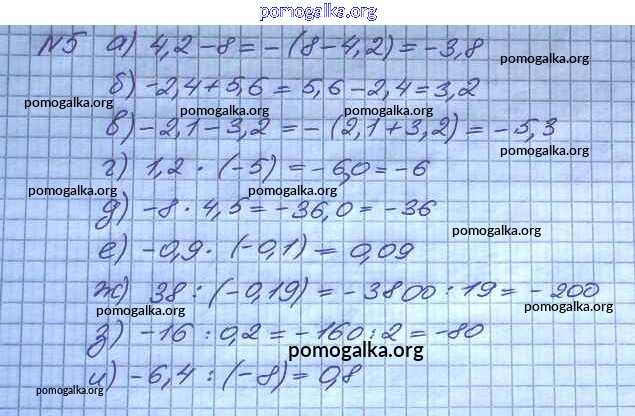 pomogalka.org
№5 а) 4,2 - 8 = - (8 - 4,2) = - 3,8
pomogalka.org
б) - 2,4 + 5,6 = 5,6 - 2,4 = 3,2
pomogalka.org
pomogalka.org
pomogalka.org
в) - 2,1 - 3,2 = - (2,1 + 3,2) = - 5,3
pomogalka.org
г) 1,2 · (-5) = - 6,0 = - 6
pomogalka.org
pomogalka.org
pomogalka.org
д) - 8 · 4,5 = - 36,0 = - 36
pomogalka.org
е) - 0,9 · (- 0,1) = 0,09
ж) 38 : (- 0,19) = - 3800 : 19 = - 200
pomogalka.org
pomogalka.org
з) - 16 : 0,2 = - 160 : 2 = - 80
pomogalka.org
pomogalka.org
и) - 6,4 : (- 8) = 0,8
pomogalka.org
pomogalka.org